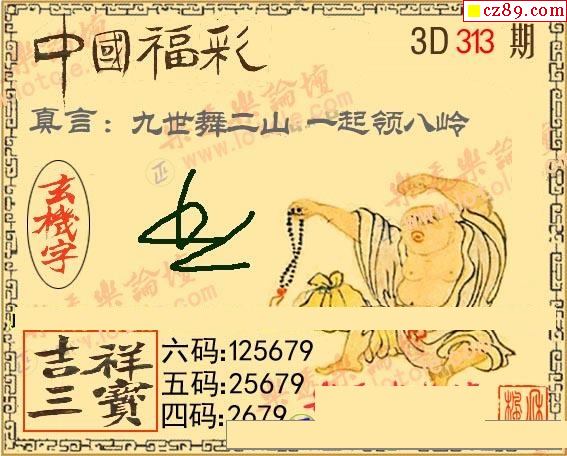 cz89.com
中國福彩
3D 313 期
真言：九世舞二山 一起领八岭
玄機字
吉祥三寶
六码:125679
五码:25679
四码:2679